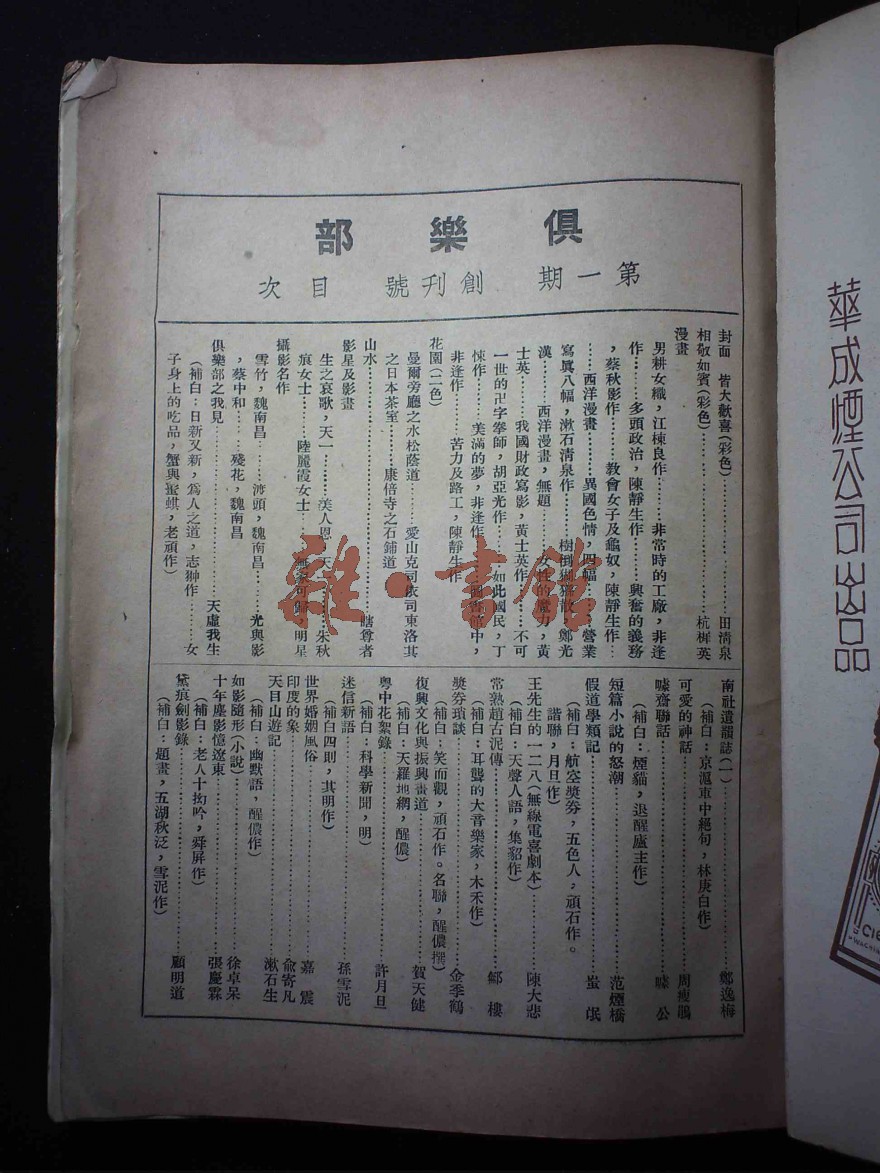 俱樂部
第一期 創刊號 目次
封面 皆大歡喜(彩色)……田清泉
相敬如賓(彩色)……杭樨英
漫畫
男耕女織，江棟良作……非常時的工廠，非逢
作……多頭政治，陳靜生作……興奮的義務
，蔡秋影作……教會女子及龜奴，陳靜生作…
……西洋漫畫……異國色情，四幅……營業
寫眞八幅，漱石清泉作……樹倒猢猻散，鄭光
漢……西洋漫畫，無題……女性的魔力，黃
士英……我國財政寫影，黃士英作……不可
一世的卍字拳師，胡亞光作……如此國民，丁
悚作……美滿的夢，非逢作……圖書館中，
非逢作……苦力及路工，陳靜生作
花園(二色)
曼爾旁廳之水松蔭道……愛山克司依司東洛其
之日本茶室……康倍寺之石鋪道
山水……瞎尊者
影星及影畫
生之哀歌，天一……美人恩，天一……朱秋
痕女士……陸麗霞女士……無家可歸，明星
攝影名作
雪竹，魏南昌……渡頭，魏南昌……光與影
，蔡中和……殘花，魏南昌
俱樂部之我見……天虛我生
(補白：日新又新，爲人之道，志翀作……女
子身上的吃品，蟹與蜜蜞，老頑作)
南社遺韻誌(一)……鄭逸梅
(補白：京滬車中絕句，林庚白作)
可愛的神話……周瘦鵑
嗉齋聯話……嗉公
(補白：煙貓，退醒廬主作)
短篇小說的怒潮……范煙橋
假道學類記……蚩氓
(補白：航空獎券，五色人，頑石作。
諧聯，月旦作)
王先生的一二八(無線電喜劇本)……陳大悲
(補白：天聲人語，集貂作)
常熟趙古泥傳……鄒樓
(補白：耳聾的大音樂家，木禾作)
獎券瑣談……金季鶴
(補白：笑而觀，頑石作。名聯，醒儂撰)
復興文化與振興畫道……賀天健
(補白：天羅地網，醒儂)
粵中花絮錄……許月旦
(補白：科學新聞，明)
迷信新語……孫雪泥
(補白四則，其明作)
世界婚姻風俗……嘉震
印度的象……俞寄凡
天目山遊記……漱石生
(補白：幽默語，醒儂作)
如影隨形(小說)……徐卓呆
十年塵影憶遼東……張慶霖
(補白：老人十拗吟，舜屏作)
黛痕劍影錄……顧明道
(補白：題畫，五湖秋泛，雪泥作)
雜·書館
華成煙公司出品